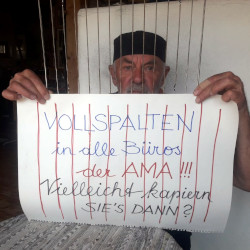 VOLLSPALTEN
in alle Büros
der AMA !!!
Vielleicht kapiern
SIE'S DANN?